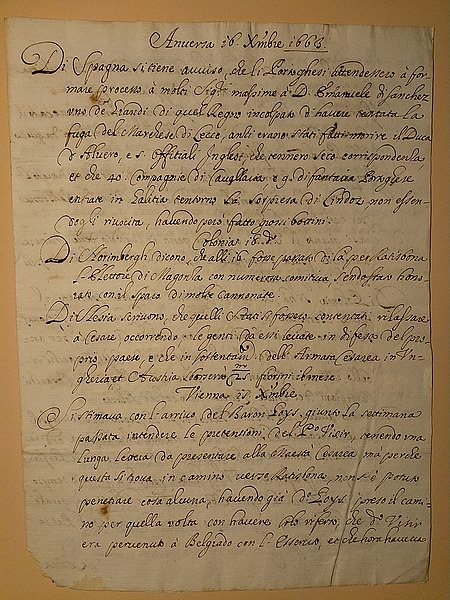 Anversa 16 Xmbre 1663
Di Spagna si tiene avviso, che li Portoghesi attendessero à for-
mare processo à molti Sigri massime à D. Emanuele di Sanchez
uno de Grandi di quel Regno incolpato d'havere tentata la
fuga del Marchese di Lecco, anzi erano stati fatti morire il Duca
d'Alvero, e 5. Offitiali Inglesi che tennero seco corrispondenza
et che 40 Compagnie di Cavallaria e 9. di fantaria Portoghese
entrate in Galitia tentorno la sorpresa di Lindoz non essen-
dogli riuscita, havendo però fatto grossi bottini.
Colonia 18. do
Di Norimbergh dicono, che alli 16 fosse passato di là per Ratisbona
l'Elettore di Magonza con numerosa comitiva, sendo stato hono-
rato con il sparo di molte Cannonate.
Di Slesia scrivono, che quelli Stati si fossero contentati rilassare
à Cesare, occorrendo le genti da essi levate in difesa del pro-
prio paese, e che in sostentam.to dell'Armata Cesarea in Un-
gheria et Austria sborsero 25 fiorini il mese.
Vienna 15 Xmbre
Si stimava con l'arrivo del Baron Goys, giunto la settimana
passata intendere le pretensioni del Po Visir, tenendo una
lunga lettera da presentare alla Maestà Cesarea ma perche
questa si trova in camino verso Ratisbona, non s'è potuto
penetrare cosa alcuna, havendo già do Goys preso il cami-
no per quella volta con havere solo riferto, che do Visir
era pervenuto à Belgrado con l'Essercito, et che hora haveva